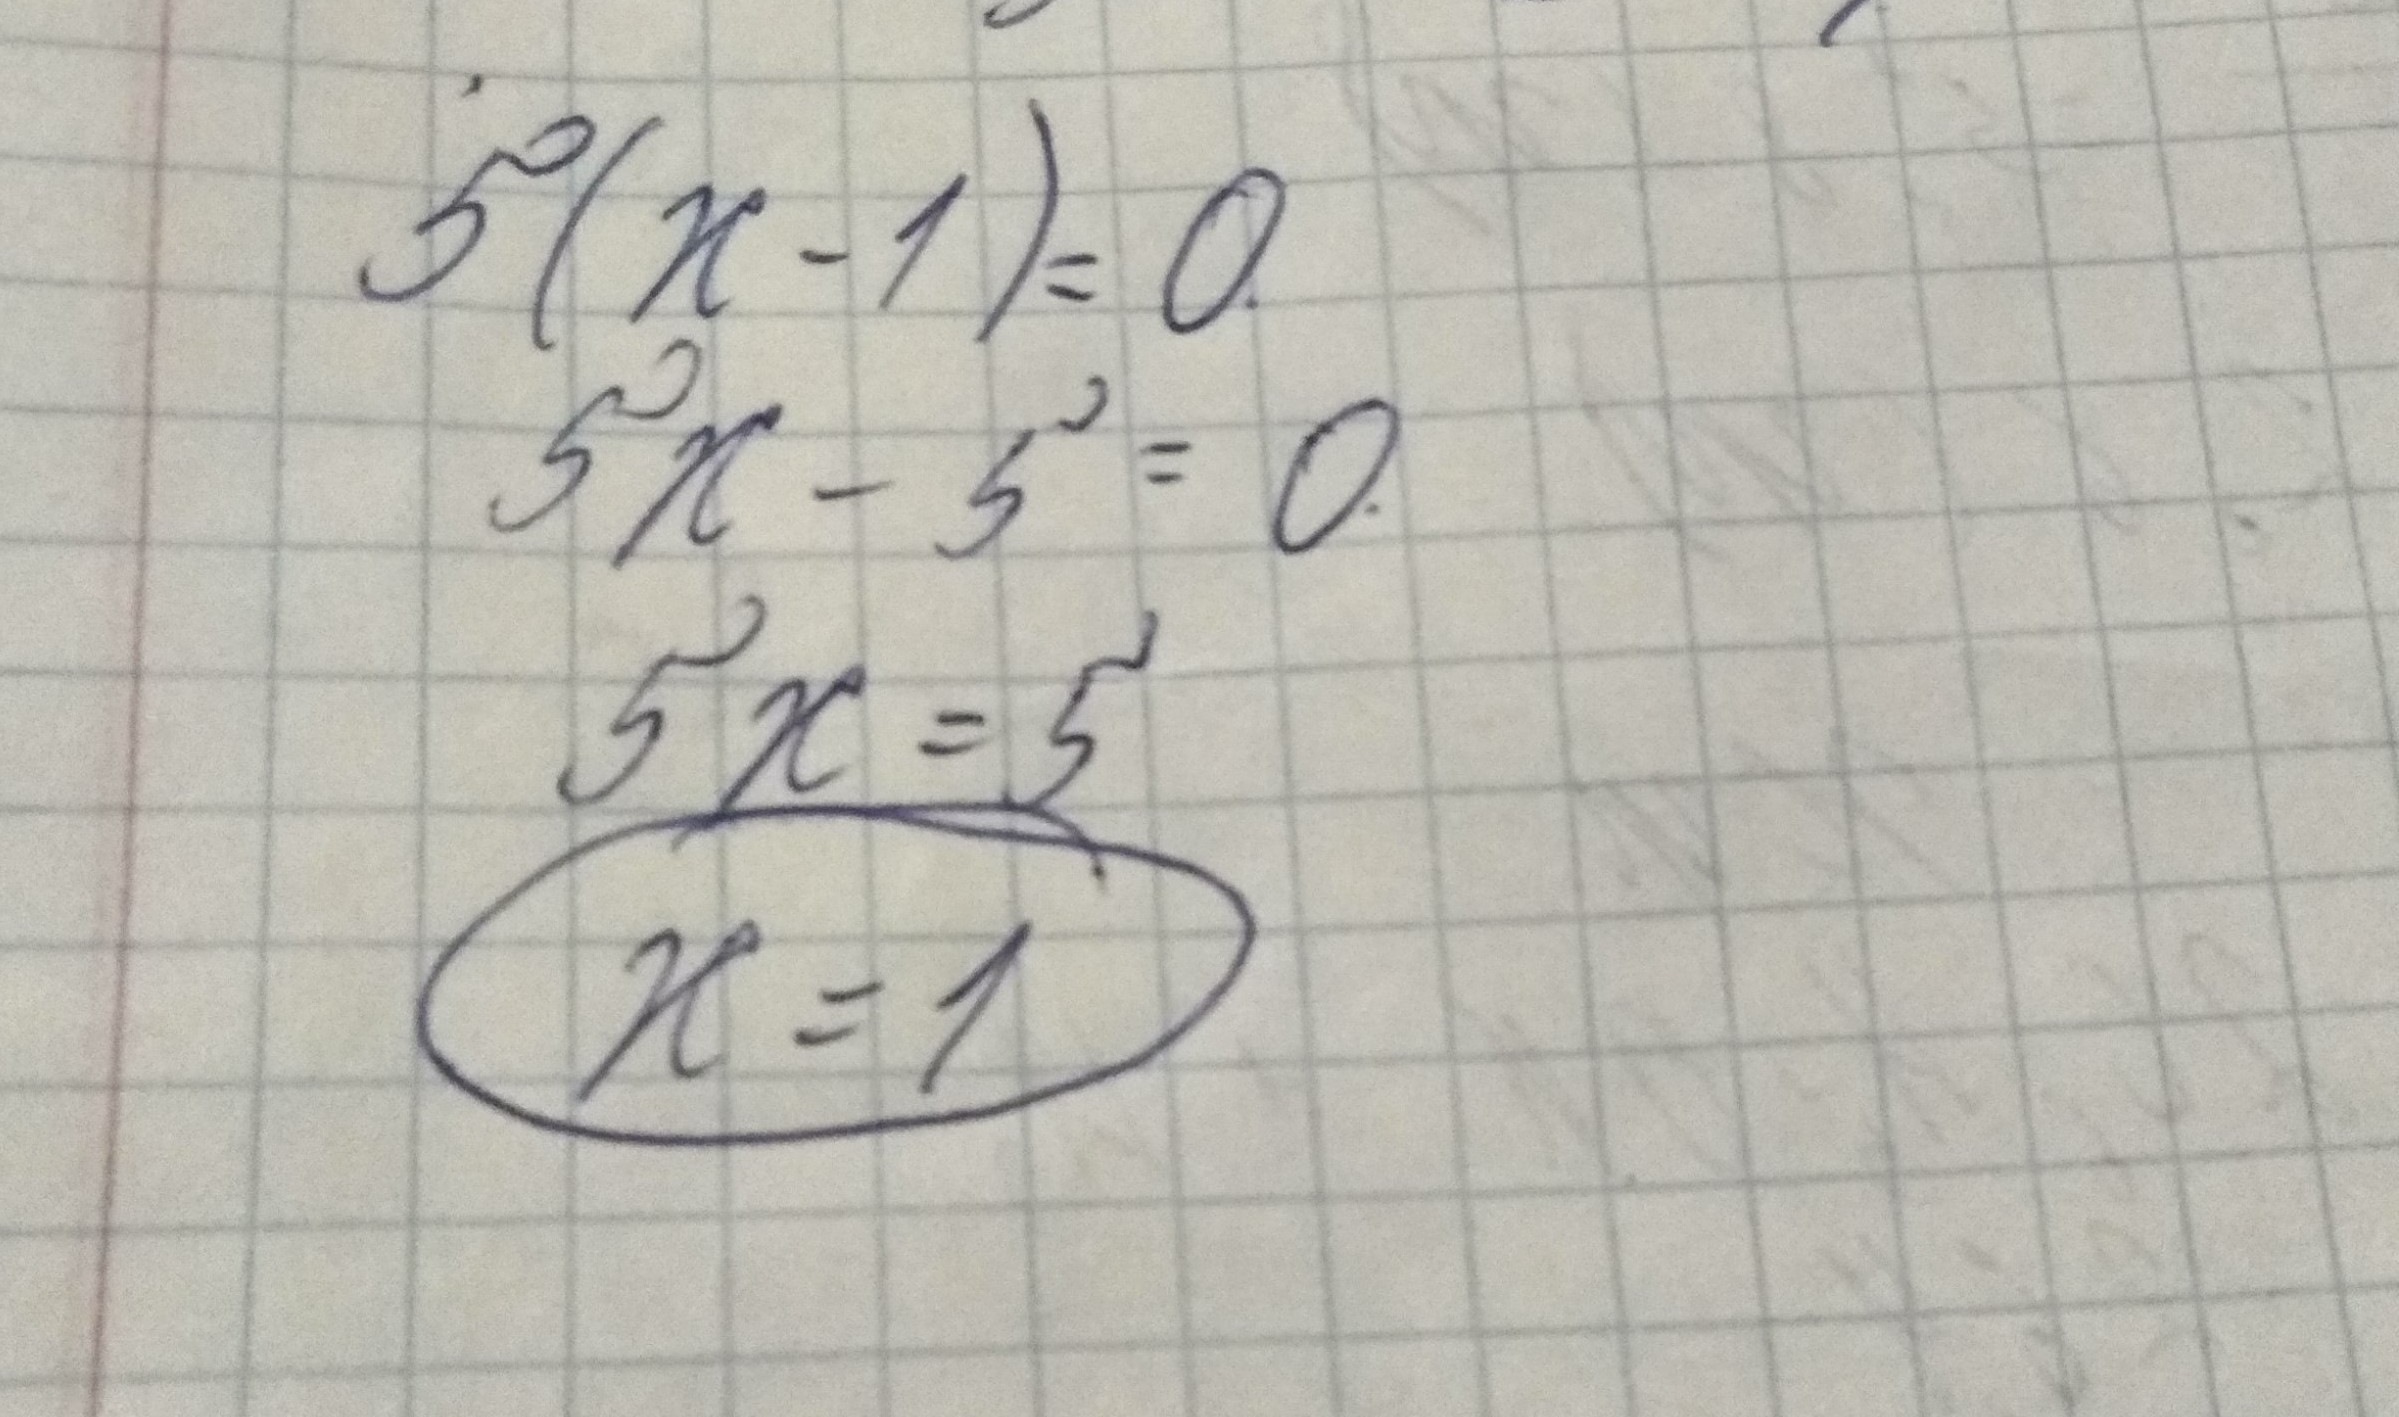 5(x-1)=0.
5x-5=0.
5x=5
x=1